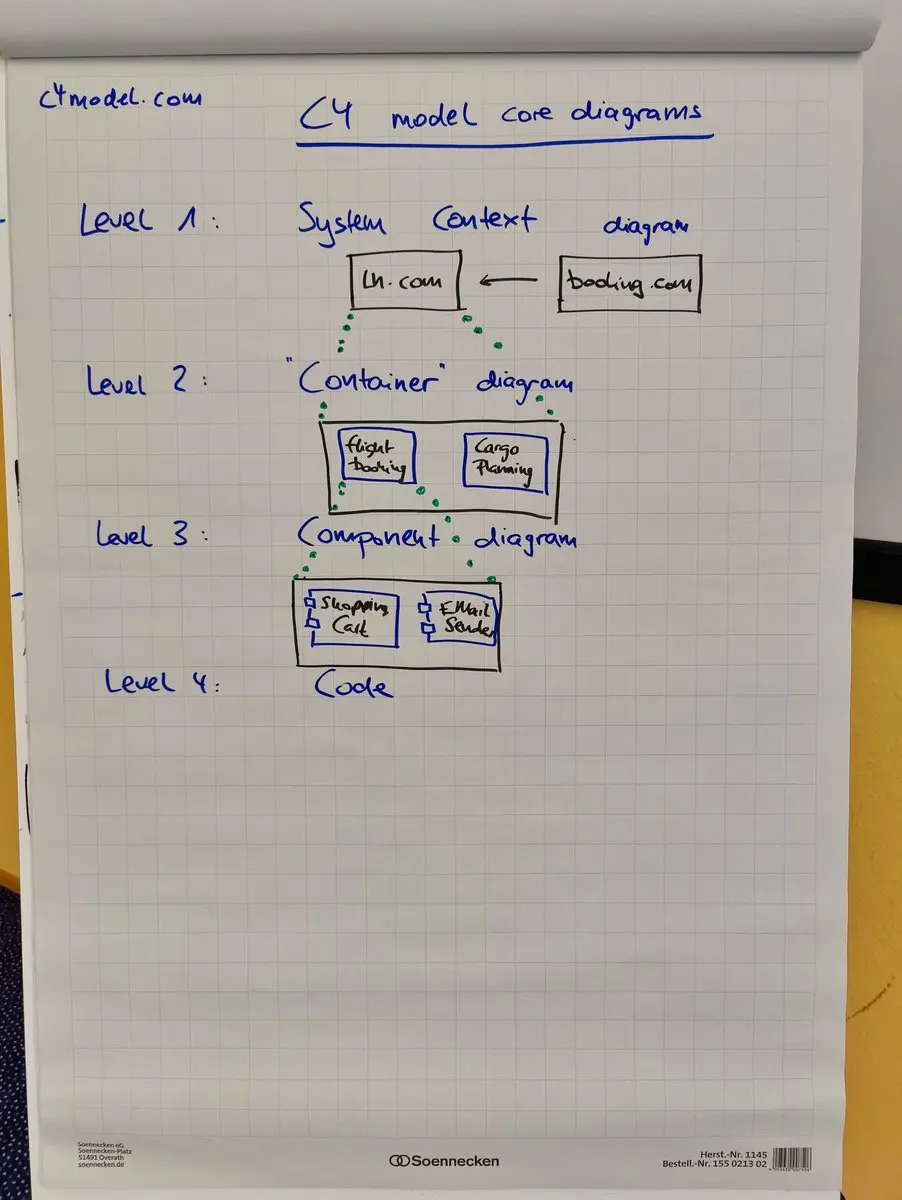 c4model.com
C4 model core diagrams
Level 1: System Context diagram
LH.com
booking.com
Level 2: "Container" diagram
flight
booking
Cargo
Planning
Level 3: Component diagram
Shopping
Cart
EMail
Sender
Level 4: Code
Soennecken eG
Soennecken-Platz
51491 Overath
soennecken.de
Soennecken
Herst.-Nr. 1145
Bestell.-Nr. 155 0213 02